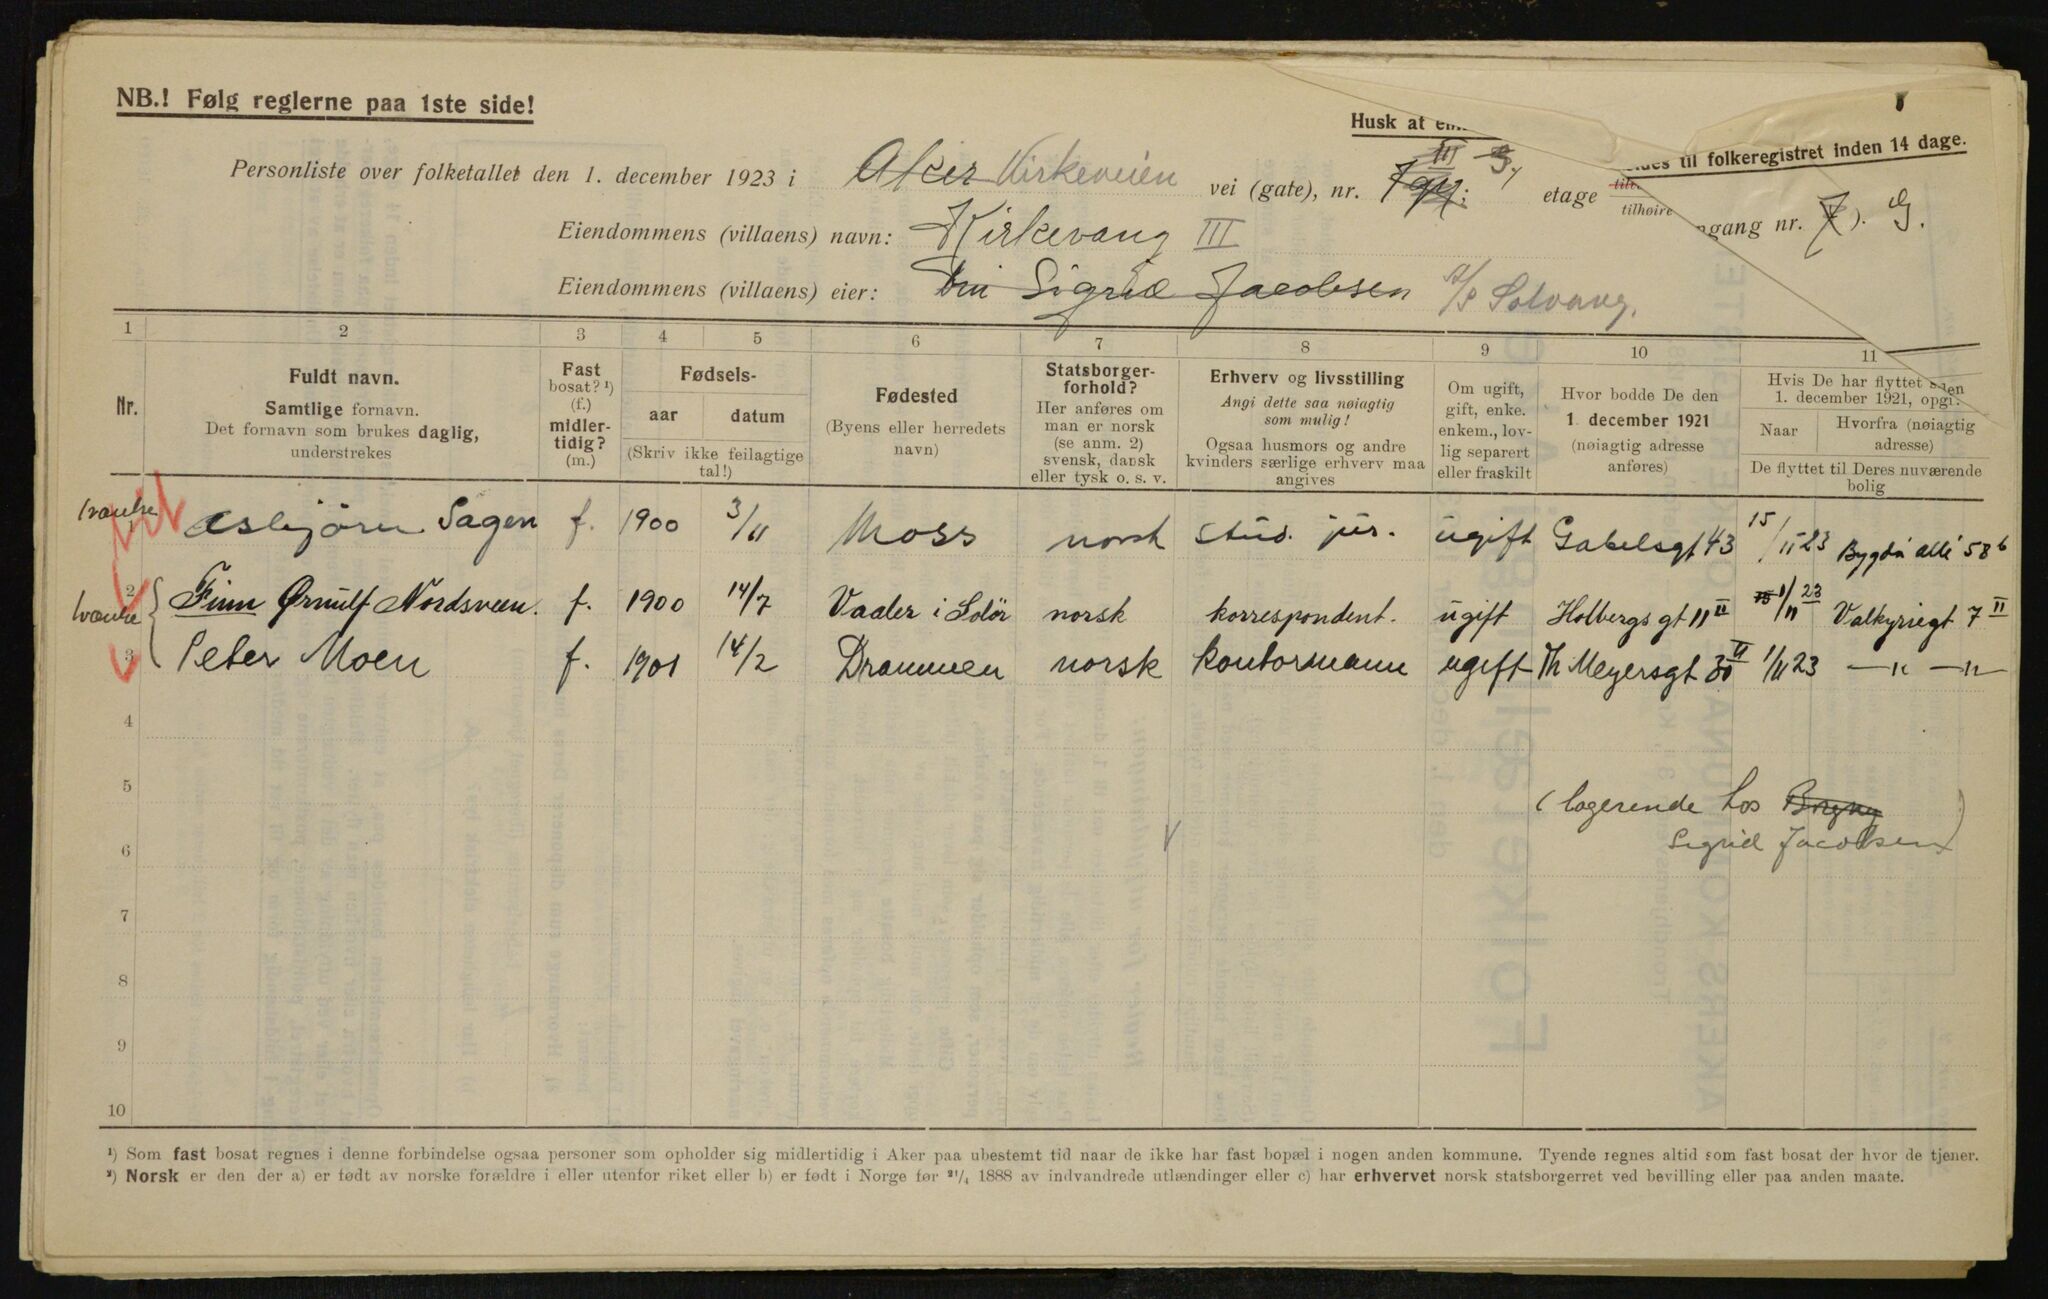 NB.! Følg reglerne paa 1ste side!
Husk at
til folkeregistret inden 14 dage.
Personliste over folketallet den 1. december 1923 i Aker Kirkeveien vei (gate), nr. III etage
tilhøire
ngang nr. 7). G.
Eiendommens (villaens) navn: Kirkevang III
Eiendommens (villaens) eier: Sigrid Jacobsen A/S Solvang.
1 2 3 4 5 6 7 8 9 10 11
Nr.
Fuldt navn.
Samtlige fornavn.
Det fornavn som brukes daglig,
understrekes
Fast
bosat? ¹)
(f.)
midler-
tidig?
(m.)
Fødsels-
aar datum
(Skriv ikke feilagtige
tal!)
Fødested
(Byens eller herredets
navn)
Statsborger-
forhold?
Her anføres om
man er norsk
(se anm. 2)
svensk, dansk
eller tysk o. s. v.
Erhverv og livsstilling
Angi dette saa nøiagtig
som mulig!
Ogsaa husmors og andre
kvinders særlige erhverv maa
angives
Om ugift,
gift, enke.
enkem., lov-
lig separert
eller fraskilt
Hvor bodde De den
1. december 1921
(nøiagtig adresse
anføres)
Hvis De har flyttet siden
1. december 1921, opgi:
Naar
Hvorfra (nøiagtig
adresse)
De flyttet til Deres nuværende
bolig
1 værelse
1 Asbjørn Sagen f. 1900 3/11 Moss norsk stud. jur. ugift Gabelsgt 43 15/11 23 Bygdø allé 58 b
1 værelse
2 Finn Ørnulf Nordsveen. f. 1900 14/7 Vaaler i Solør norsk korrespondent. ugift Holbergs gt 11 II 1/11 23 Valkyriegt 7 II
3 Peter Moen f. 1901 14/2 Drammen norsk kontormann ugift Th Meyersgt 30 II 1/11 23 — " — " —
4
5
(logerende hos Borgny
6
Sigrid Jacobsen)
7
8
9
10
¹) Som fast bosat regnes i denne forbindelse ogsaa personer som opholder sig midlertidig i Aker paa ubestemt tid naar de ikke har fast bopæl i nogen anden kommune. Tyende regnes altid som fast bosat der hvor de tjener.
²) Norsk er den der a) er født av norske forældre i eller utenfor riket eller b) er født i Norge før 21/4 1888 av indvandrede utlændinger eller c) har erhvervet norsk statsborgerret ved bevilling eller paa anden maate.